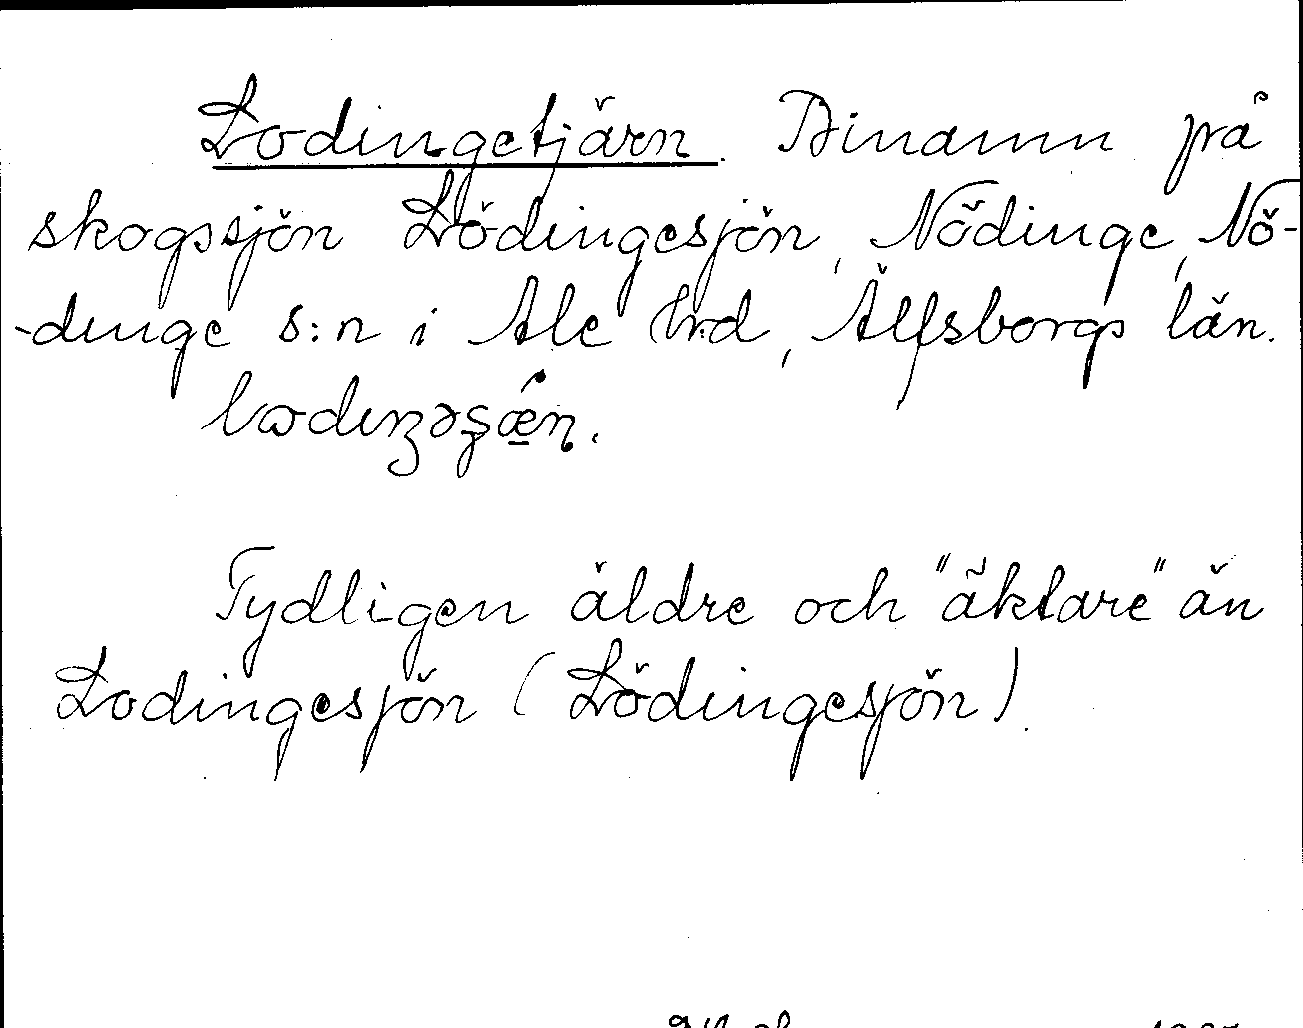 Lodingetjärn. Binamn på
skogssjön Lödingesjön, Nödinge, Nö-
-dinge s:n i Ale hrd, Älfsborgs län.
Tydligen äldre och "äktare" än
Lodingesjön (Lödingesjön).